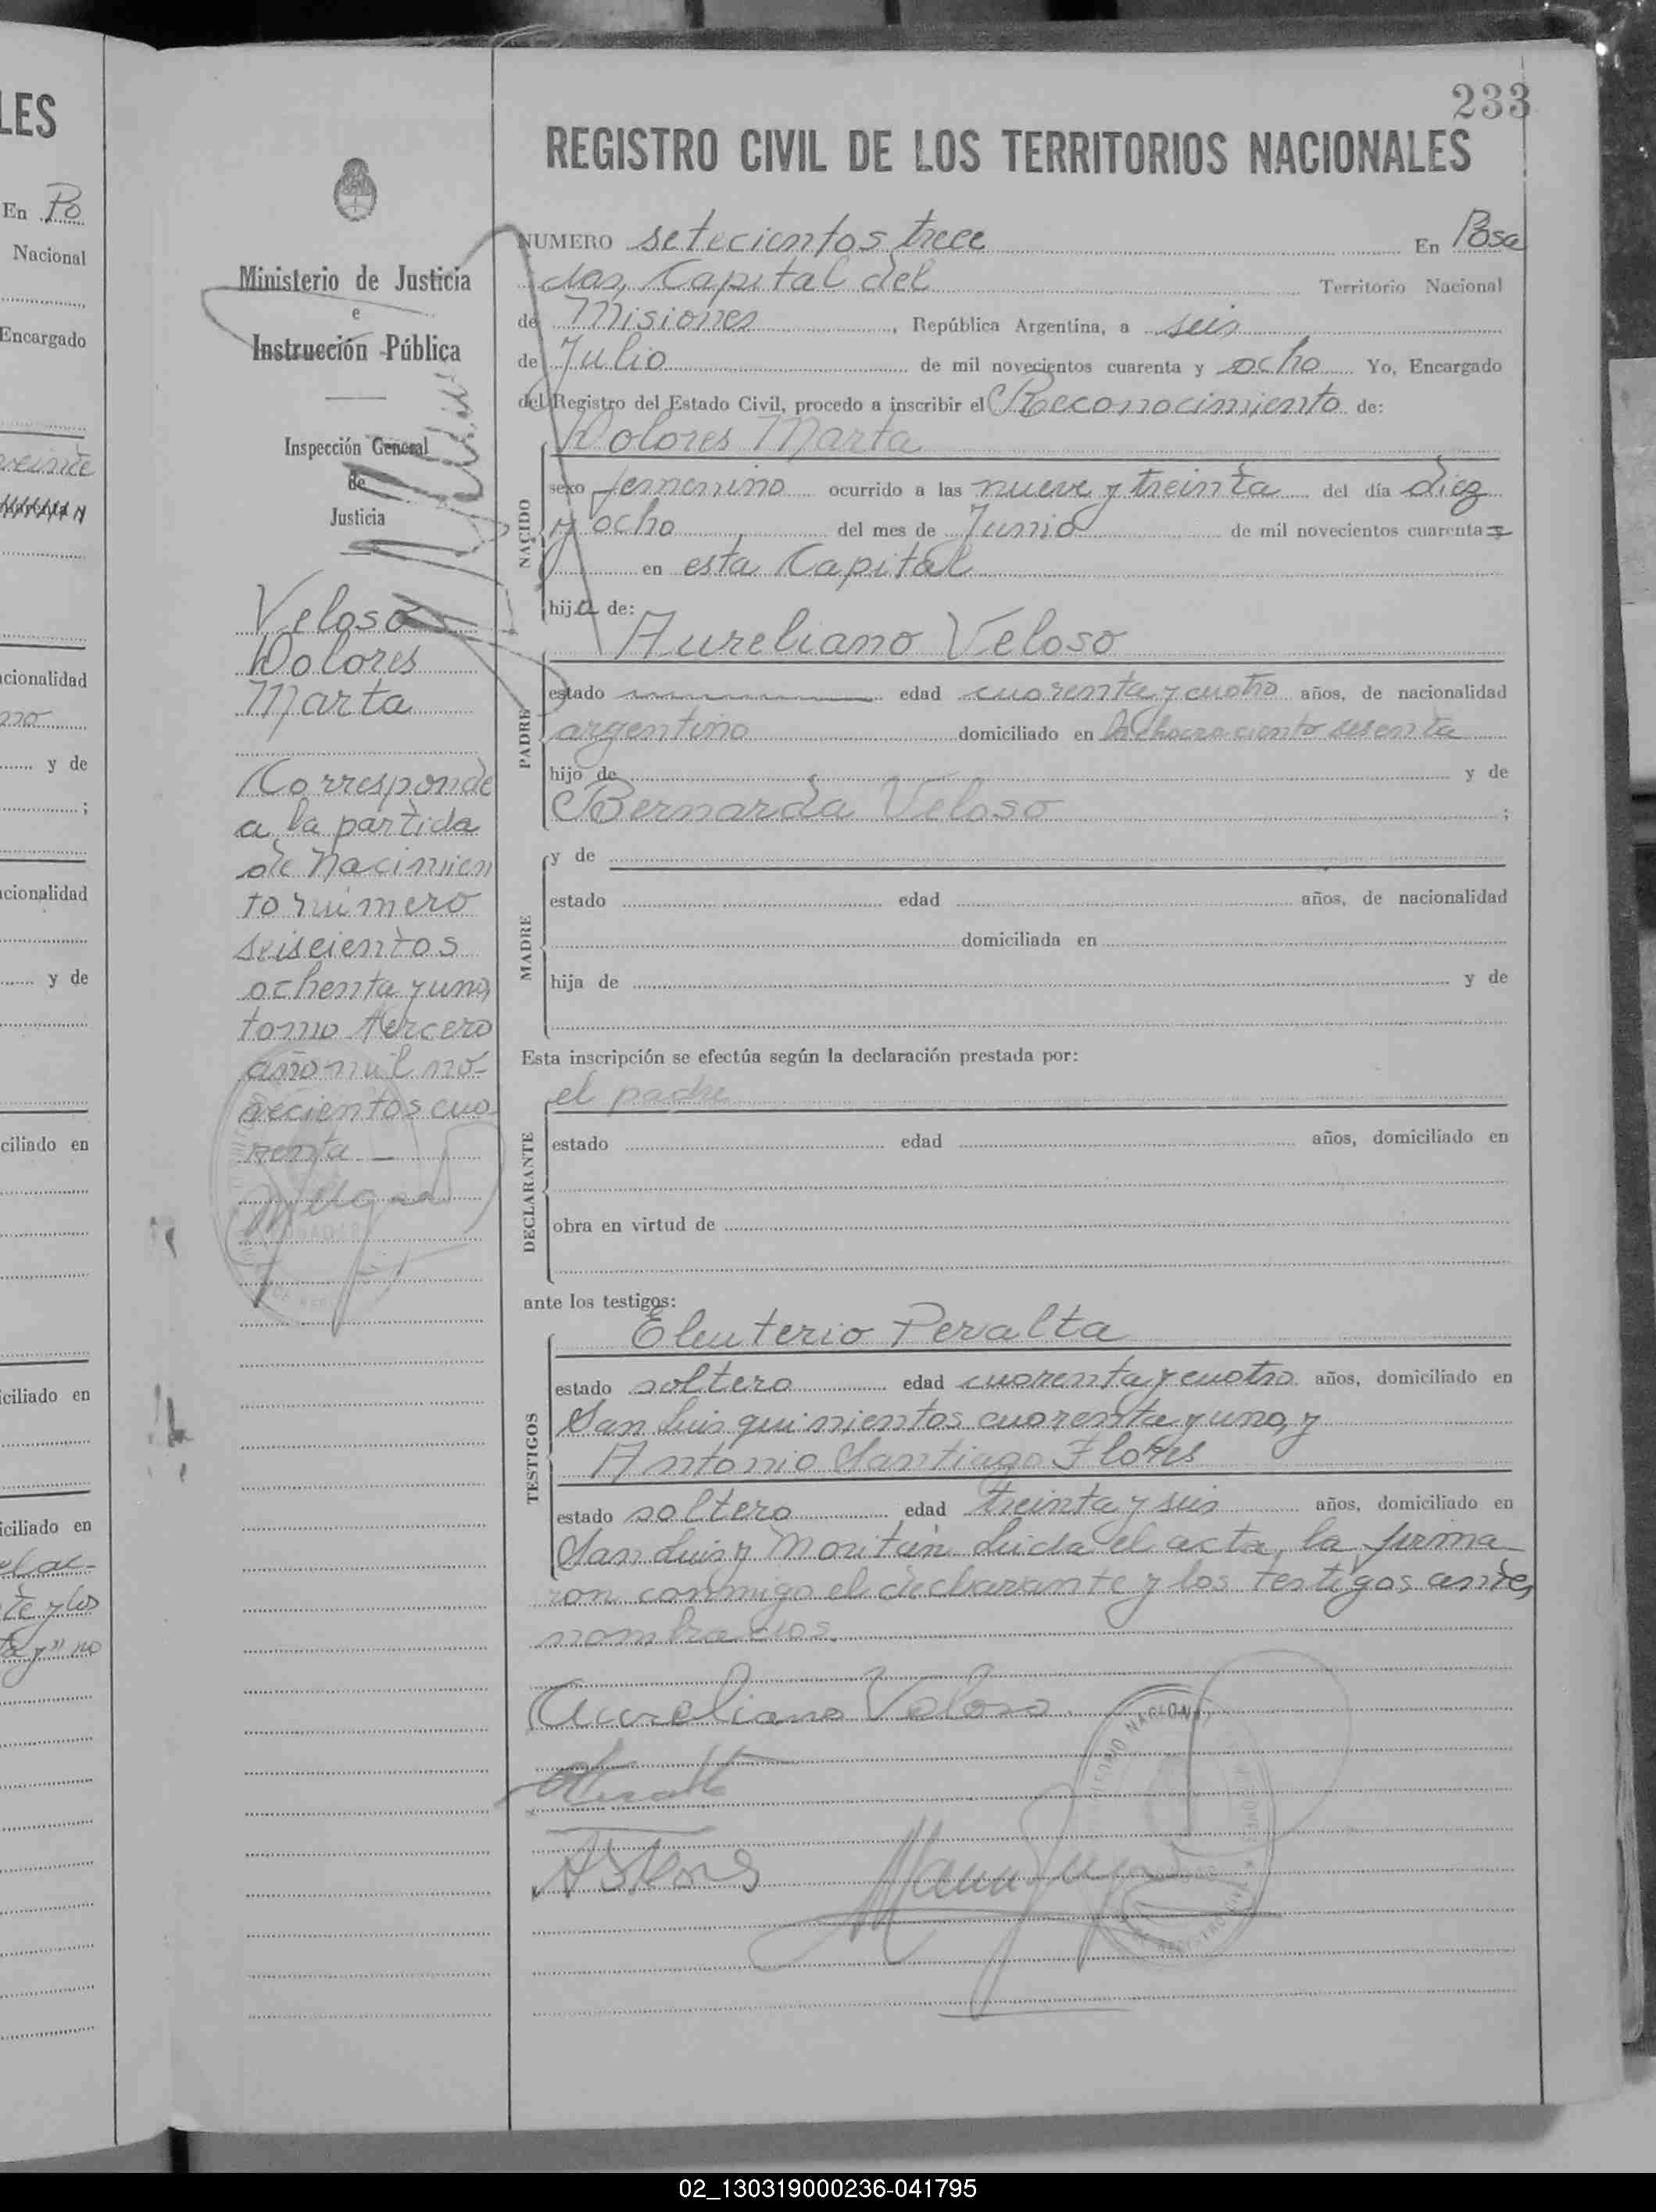 LES
En Po
Nacional
Encargado
veinte
acionalidad
no
y de
;
acionalidad
y de
ciliado en
iciliado en
iciliado en
el ac-
te y los
ta y" no
233
REGISTRO CIVIL DE LOS TERRITORIOS NACIONALES
Ministerio de Justicia
e
Instrucción Pública
Inspección General
de
Justicia
Veloso
Dolores
Marta
Corresponde
a la partida
de Nacimien
to número
seiscientos
ochenta y uno,
tomo tercero
año mil no-
vecientos cua
renta —
NUMERO setecientos trece En Posa
das, Capital del Territorio Nacional
de Misiones, República Argentina, a seis
de Julio de mil novecientos cuarenta y ocho Yo, Encargado
del Registro del Estado Civil, procedo a inscribir el Reconocimiento de:
Dolores Marta
NACIDO
sexo femenino ocurrido a las nueve y treinta del día diez
y ocho del mes de Junio de mil novecientos cuarenta
en esta Capital
hija de:
Aureliano Veloso
PADRE
estado edad cuarenta y cuatro años, de nacionalidad
argentino domiciliado en la chacra ciento sesenta
hijo de y de
Bernarda Veloso ;
MADRE
y de
estado edad años, de nacionalidad
domiciliada en
hija de y de
Esta inscripción se efectúa según la declaración prestada por:
el padre
DECLARANTE
estado edad años, domiciliado en
obra en virtud de
ante los testigos:
Eleuterio Peralta
TESTIGOS
estado soltero edad cuarenta y cuatro años, domiciliado en
San Luis quinientos cuarenta y uno, y
Antonio Santiago Flores
estado soltero edad treinta y seis años, domiciliado en
San Luis y Moritán. Leida el acta, la firma
ron conmigo el declarante y los testigos antes
nombrados.
Aureliano Veloso
02_130319000236-041795